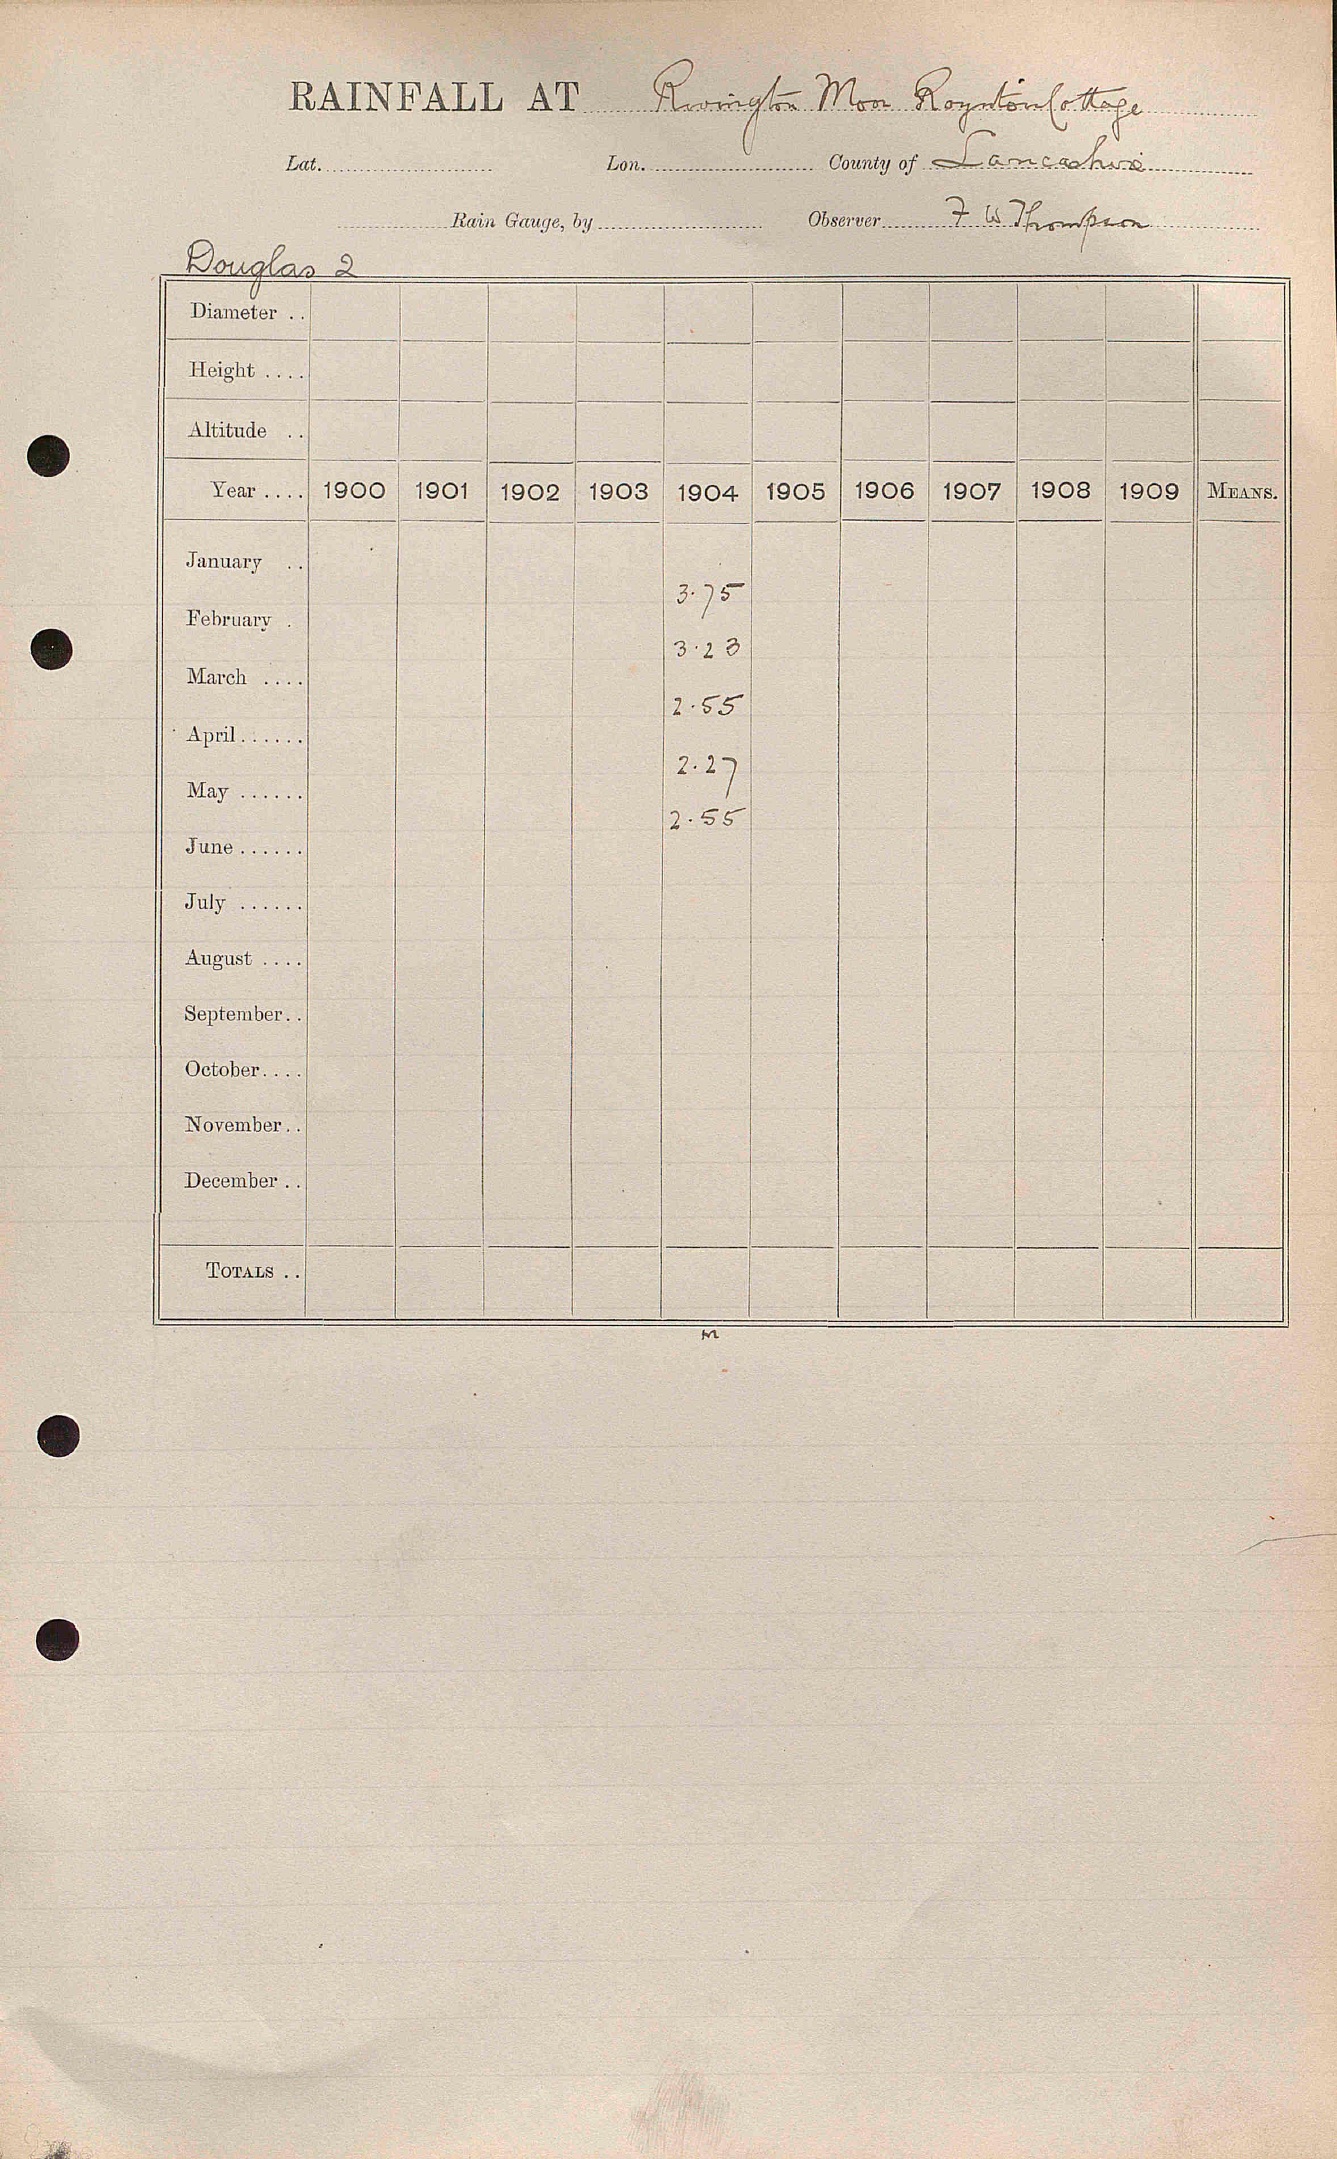 RAINFALL AT Rivington Moor Roynton Cottage
Lat. Lon. County of Lancashire
Rain Gauge, by Observer F W Thompson
Douglas 2
Diameter ..
Height ....
Altitude ..
Year .... 1900 1901 1902 1903 1904 1905 1906 1907 1908 1909 MEANS.
January ..
3.75
February .
3.23
March ....
2.55
April......
2.27
May ......
2.55
June ......
July ......
August ....
September..
October....
November..
December ..
TOTALS ..